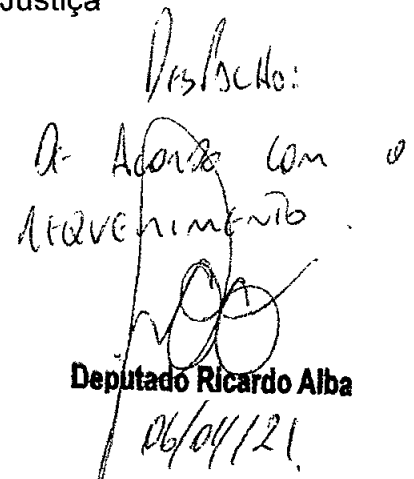 Justiça
Despacho:
De Acordo com o
requerimento.
Deputado Ricardo Alba
06/04/21.